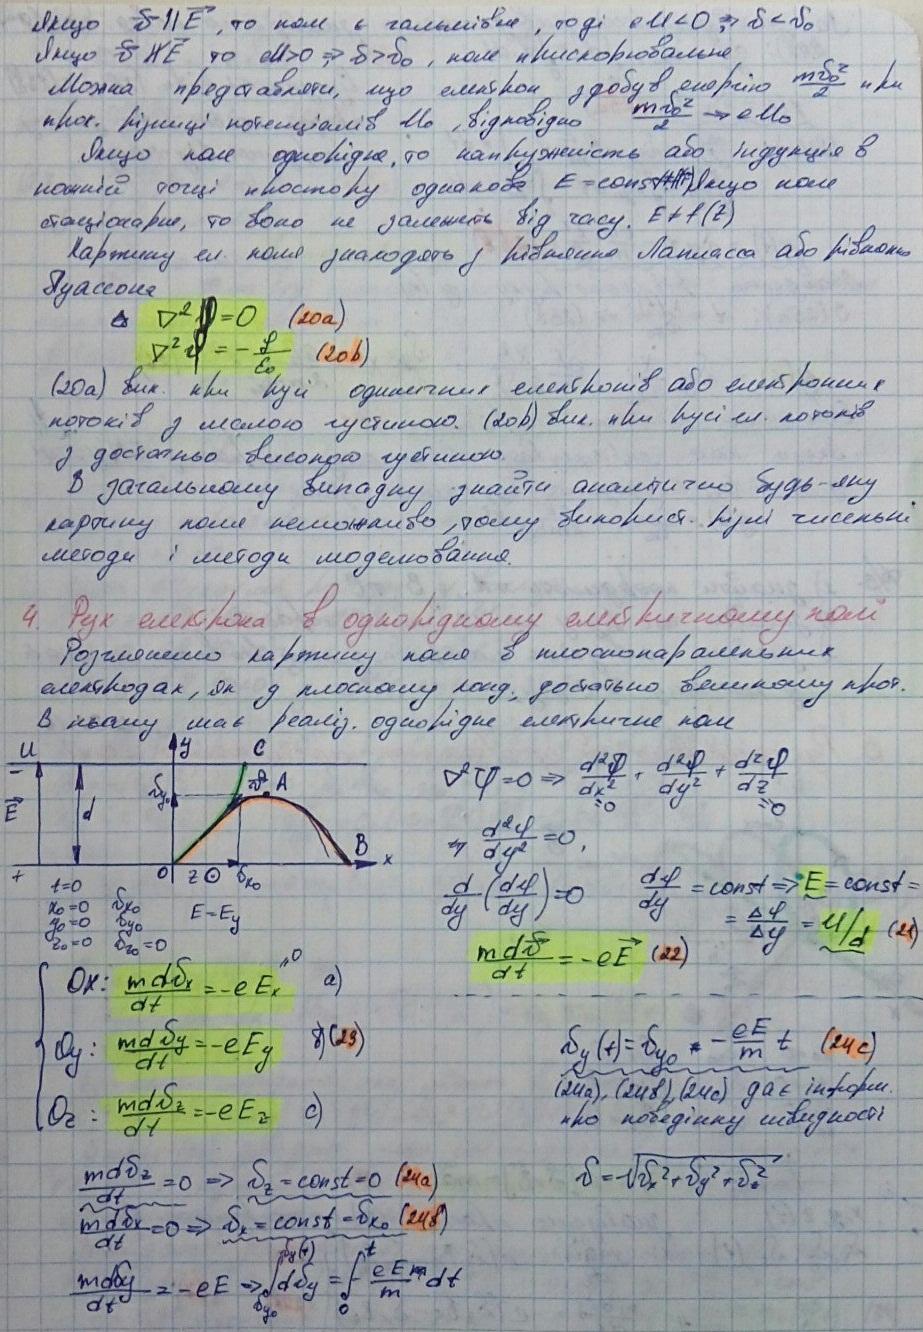 Якщо v⃗ ∥ E⃗, то поле є гальмівне, тоді eU<0 ⇒ v<v₀
Якщо v⃗ ∦ E⃗ то eU>0 ⇒ v>v₀, поле прискорювальне
Можна представляти, що електрон здобув енергію mv₀²/2 при
прох. різниці потенціалів U₀, відповідно mv₀²/2 → eU₀
Якщо поле однорідне, то напруженість або індукція в
кожній точці простору однакова E=const Якщо поле
стаціонарне, то воно не залежить від часу. E≠f(t)
Картину ел. поля знаходять з рівняння Лапласса або рівняння
Пуассона
∇²φ=0 (20a)
∇²φ = -ρ/ε₀ (20b)
(20a) вик. при русі одиничних електронів або електронних
потоків з малою густиною. (20b) вик. при русі ел. потоків
з достатньо високою густиною.
В загальному випадку знайти аналітично будь-яку
картину поля неможливо, тому використ. різні чисельні
методи і методи моделювання.
4. Рух електрона в однорідному електричному полі
Розглянемо картину поля в плоскопаралельних
електродах, як у плоскому конд. достатньо великому прот.
В ньому має реаліз. однорідне електричне поле
U y C
− v_y₀ v⃗ A
E⃗ d
B
+ O z⊙ v_x₀ x
t=0
x₀=0 v_x₀
y₀=0 v_y₀ E=E_y
z₀=0 v_z₀=0
∇²φ=0 ⇒ d²φ/dx² + d²φ/dy² + d²φ/dz²
=0 =0
⇒ d²φ/dy² =0,
d/dy (dφ/dy)=0 dφ/dy = const ⇒ E=const=
= Δφ/Δy = U/d (21)
mdv⃗/dt = -eE⃗ (22)
Ox: mdv_x/dt = -eE_x =0 a)
Oy: mdv_y/dt = -eE_y b) (23)
Oz: mdv_z/dt = -eE_z c)
v_y(t)=v_y₀ - eE/m t (24c)
(24a), (24b), (24c) дає інформ.
про поведінку швидкості
v=√(v_x²+v_y²+v_z²)
mdv_z/dt =0 ⇒ v_z=const=0 (24a)
mdv_x/dt =0 ⇒ v_x=const=v_x₀ (24b)
mdv_y/dt = -eE ⇒ ∫_{v_y₀}^{v_y(t)} dv_y = ∫_0^t - eE/m dt